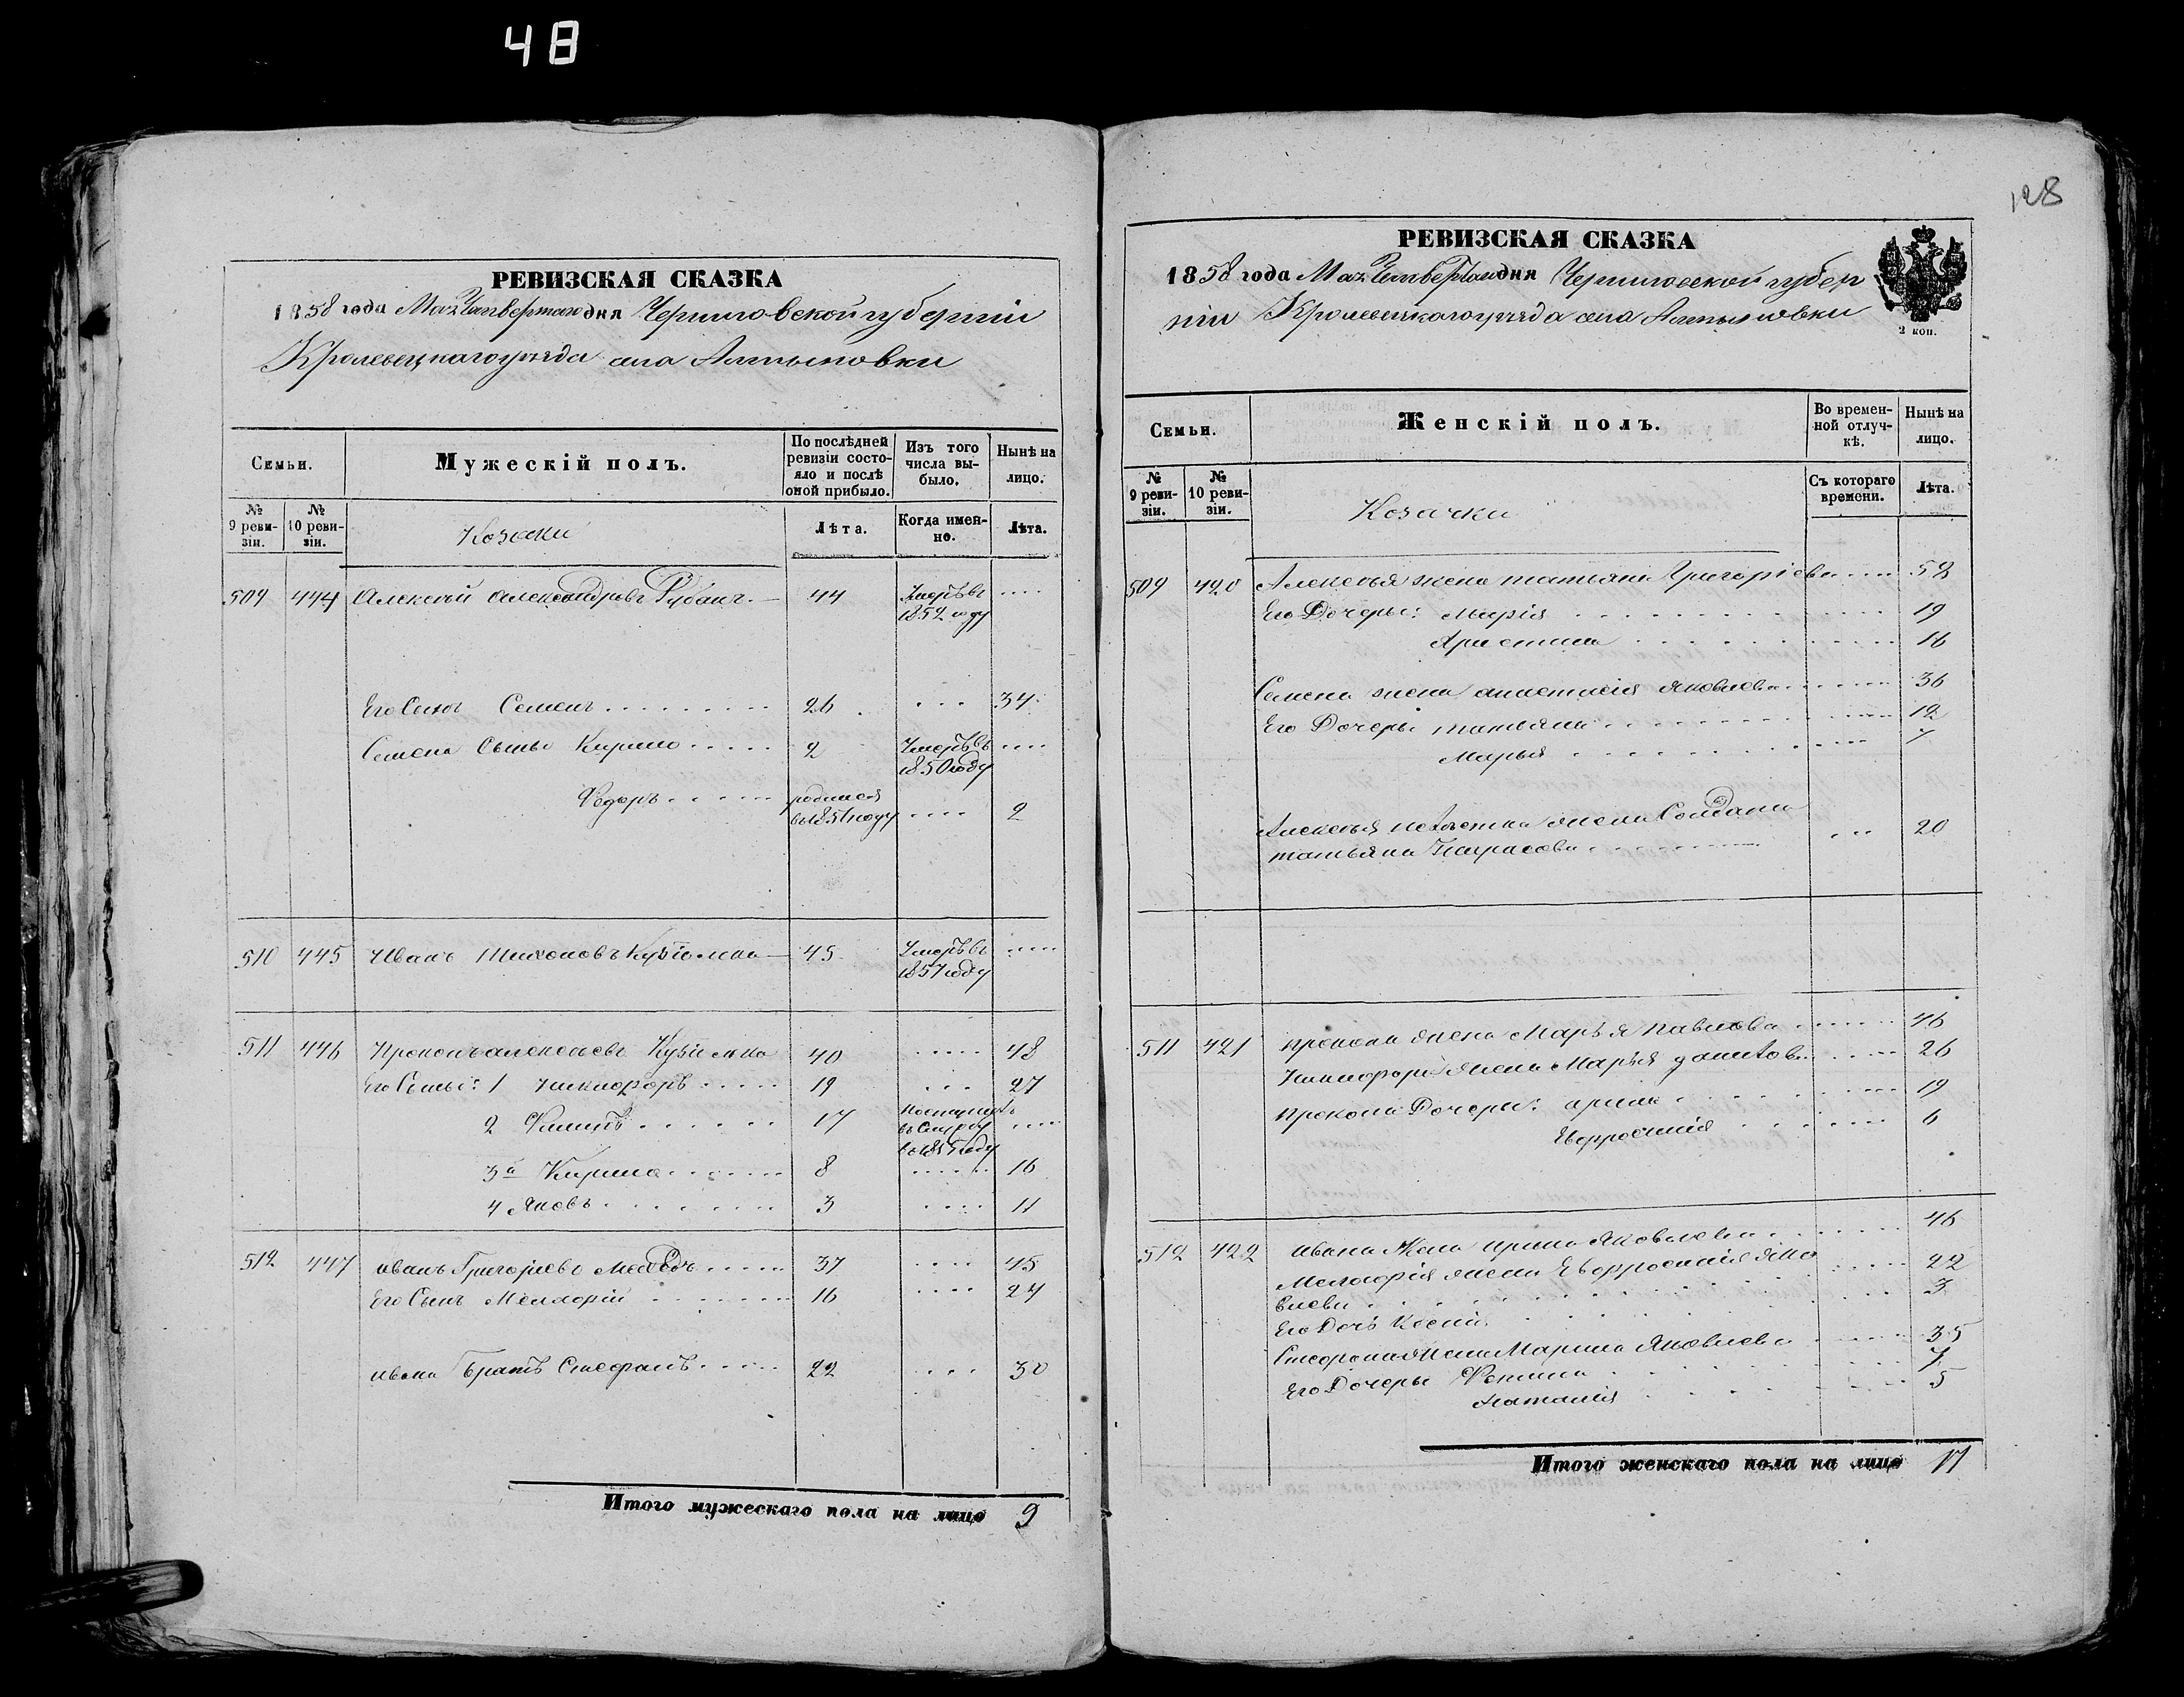 48
РЕВИЗСКАЯ СКАЗКА
1858 года Мая Четвертаго дня Черниговской губерніи
Кролевецкаго уезда села Алтыновки
Семьи.
Мужескій полъ.
По послѣдней ревизіи состо-
яло и послѣ оной прибыло.
Изъ того числа вы-
было.
Нынѣ на лицо.
№ 9 реви-
зіи.
№ 10 реви-
зіи.
Козаки
Лѣта.
Когда имен-
но.
Лѣта.
509 444 Алексей Александровъ Рубанъ 44 Умеръ въ ....
1852 году
Его Сынъ Семенъ 26 ... 34
Семена Сыны Кирило 2 Умеръ въ ....
1850 году
Федоръ родился .... 2
510 445 Иванъ Тихоновъ 45 Умеръ въ ....
1857 году
511 446 Прокопъ Алексеевъ 40 .... 48
Его Сыны: 1 Никифоръ 19 ... 27
2 Филипъ 17 ....
3й Кирило 8 .... 16
4 Яковъ 3 .... 11
512 447 Иванъ Григорьевъ 37 .... 45
Его Сынъ Мелхорій 16 .... 24
Ивана братъ Стефанъ 22 ... 30
Итого мужескаго пола на лицо 9
128
РЕВИЗСКАЯ СКАЗКА
1858 года Мая Четвертаго дня Черниговской губер
ніи Кролевецкаго уезда села Алтыновки
2 коп.
Семьи.
Женскій полъ.
Во времен-
ной отлуч-
кѣ.
Нынѣ на лицо.
№ 9 реви-
зіи.
№ 10 реви-
зіи.
Козачки
Съ котораго времени.
Лѣта.
509 420 Алексея жена татьяна Григоріева 52
Его Дочеры: Марія 19
Христина 16
Семена жена анастасія Яковлева 36
Его Дочеры татьяна 12
Марья 7
Алексея жена Солдатка
татьяна ... 20
511 421 Прокопа жена Марья Павлова 46
Никифора жена Марья 26
Прокопа Дочеры: арина 19
Евфросинія 6
512 422 Ивана Жена Ирина Яковлева 46
Мелхорія жена Евфросинія Яко
влева 22
Его Дочь 3
Стефана жена Марина Яковлева 35
Его Дочеры 7
Наталія 5
Итого женскаго пола на лицо 17